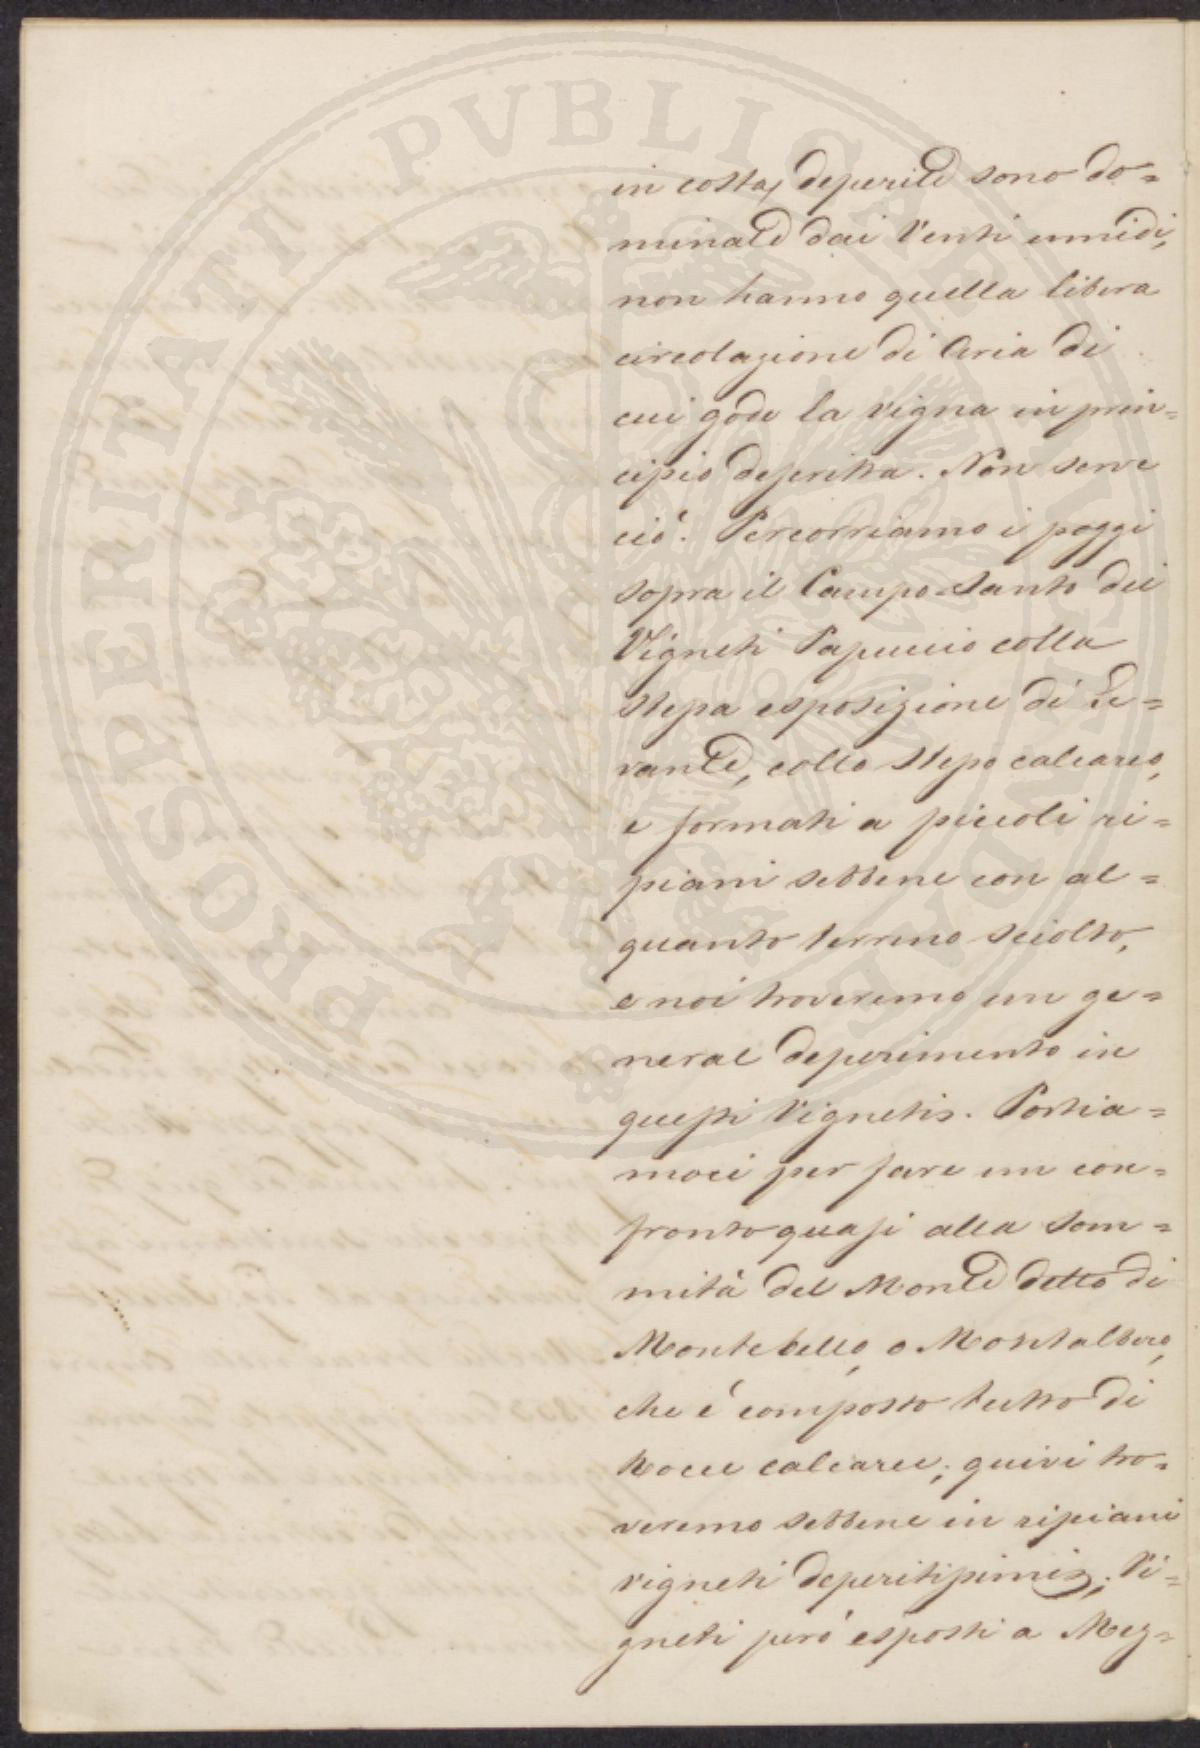 PROSPERITATI PVBLICAE AVGENDAE
in costa, deperite sono do=
minate dai Venti umidi,
non hanno quella libera
circolazione di Aria di
cui gode la vigna in prin=
cipio descritta. Non serve
ciò. Percorriamo i poggi
sopra il Campo-Santo dei
Vigneti Papuccio colla
stessa esposizione di Le=
vante, collo stesso calcareo,
e formati a piccoli ri=
piani sebbene con al=
quanto terreno sciolto,
e noi troveremo un ge=
neral deperimento in
questi Vigneti. Portia=
moci per fare un con=
fronto quasi alla som=
mità del Monte detto di
Montebello, o Montalbero,
che è composto tutto di
Rocce calcaree; quivi tro=
veremo sebbene in ripiani
vigneti deperitissimi; Vi=
gneti però esposti a Mez=